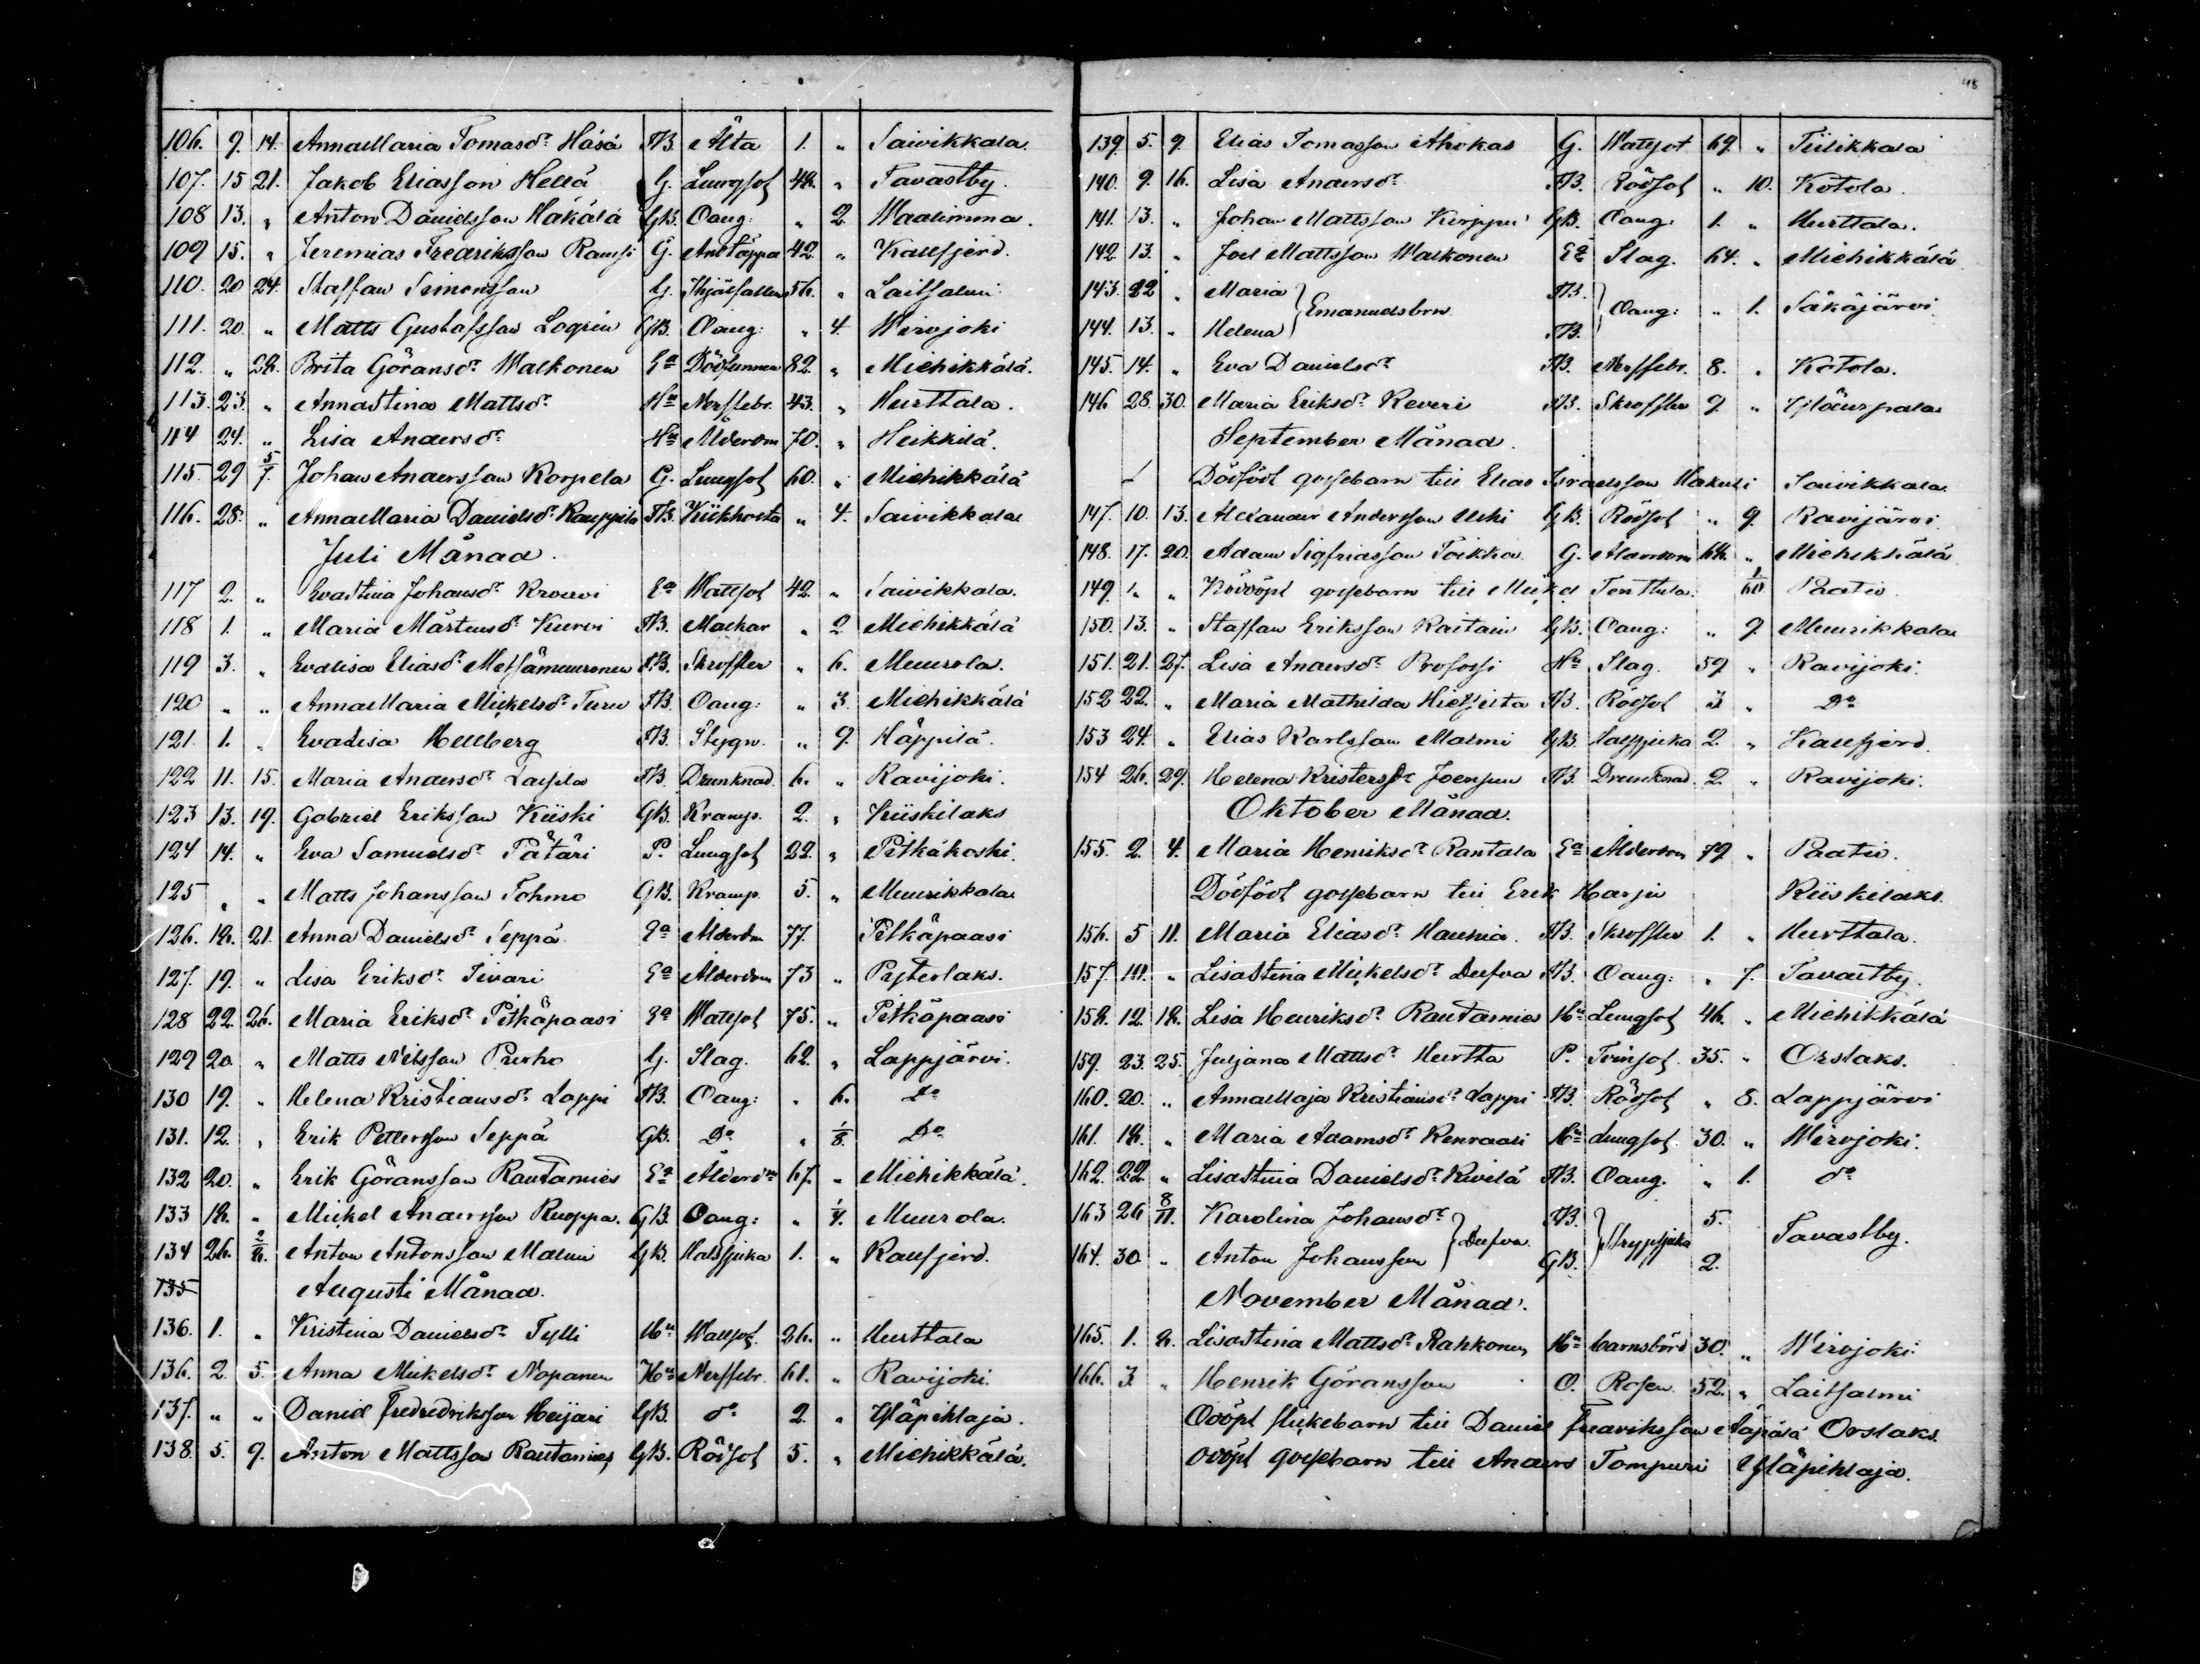 48
106. 9. 14. Anna Maria Tomasdr Häsä FB. Älta 1. " Saivikkala.
107. 15 21. Jakob Eliasson Hellä G. Lungsot 48. " Tavastby.
108 13. " Anton Danielsson Hakälä GB. Oang: " 2 Waalimma.
109 15. " Jeremias Fredriksson G. 42. " Kallfjerd.
110. 20 24. Staffan Simonsson G. Ihjälfallen 56. " Laitsalmi
111. 20. " Matts Gustafsson Logrén GB. Oang: " 4. Wirojoki
112. " 28. Brita Göransdr Walkonen Ea Dödfunnen 82. " Miehikkälä.
113. 23. " Anna Stina Mattsdr Hu Nerffebr. 43. " Hurttala.
114 24. " Lisa Andersdr Hu Ålderdm 70. " Heikkilä.
115. 29 5/7. Johan Andersson Korpela G. Lungsot 60. " Miehikkälä
116. 28. " Anna Maria Danielsdr Kauppila FB. Kikhosta " 4. Saivikkala
Juli Månad.
117 2. " Eva Stina Johansdr Ea Wattsot 42. " Saivikkala.
118 1. " Maria Mårtensdr Kurvi FB. Maskar " 2 Miehikkälä
119 3. " Eva Lisa Eliasdr Metsämuuronen FB. Skroffler " 6. Muurola.
120 " " Anna Maria Mickelsdr Turu FB. Oang: " 3. Miehikkälä
121. 1. " Eva Lisa Hellberg FB. Stygn. " 9. Häppilä.
122 11. 15. Maria Andersdr FB. Drunknad. 6. " Ravijoki.
123 13. 19. Gabriel Eriksson Kiiski GB. Kramp. 2. " Kiiskilaks
124 14. " Eva Samuelsdr Tätäri P. Lungsot 22. " Pitkäkoski.
125 " " Matts Johansson Tohmo GB. Kramp. 5. " Muurikkala
126. 18. 21. Anna Danielsdr Seppä Ea Ålderdm 77. Pitkäpaasi
127. 19. " Lisa Eriksdr Sivari Ea Ålderdom 73 " Pyterlaks.
128 22. 26. Maria Eriksdr Pitkäpaasi Ea Wattsot 75. " Pitkäpaasi
129 20. " Matts Nilsson Purho G. Slag. 62. " Lappjärvi.
130 19. " Helena Kristiansdr Lappi FB. Oang: " 6. Do
131. 12. " Erik Pettersson Seppä GB. Do " 1/8. Do
132 20. " Erik Göransson Rautamies Ea Ålderdm 67. " Miehikkälä.
133 18. " Mickel Andersson Ruoppa. GB. Oang: " 1/4. Muurola.
134 26. 2/8. Anton Antonsson Malmi GB. Halssjuka 1. " Kallfjerd.
135 Augusti Månad.
136. 1. " Kristina Danielsdr Tylli Hu Wattsot. 26. " Hurttala
136. 2. 5. Anna Mickelsdr Nopanen Hu Nerffebr. 61. " Ravijoki.
137. " " Daniel Fredredriksson Heijari GB. do 2. " Yläpihlaja.
138. 5. 9. Anton Mattsson Rautamies GB. Rödsot 5. " Miehikkälä.
139. 5. 9. Elias Tomasson Ahokas G. Wattsot 69. " Tiilikkala
140. 9. 16. Lisa Andersdr FB. Rödsot " 10. Kotola.
141. 13. " Johan Mattsson Kirppu GB. Oang: 1. " Hurttala.
142. 13. " Joel Mattsson Walkonen Ea Slag. 64. " Miehikkälä
143. 22 " Maria } Emanuelsbrn FB. } Oang: " 1. Säkäjärvi.
144. 13. " Helena } FB. }
145. 14. " Eva Danielsdr FB. Nerffebr. 8. " Kotola.
146 28. 30. Maria Eriksdr Reveri FB. Skroffler 9. "
September Månad.
Dödfödt gossebarn till Elias Israelsson Hakuli Saivikkala.
147. 10. 13. Alexander Andersson Uski GB. Rödsot " 9. Ravijärvi.
148. 17. 20. Adam Sigfridsson Toikka. G. Ålderdom 68. " Miehikkälä
149 " " gossebarn till Mickel Tenttula. Paatio.
150. 13. " Staffan Eriksson Raitain GB. Oang: " 9. Muurikkala
151. 21. 27. Lisa Andersdr Profossi Hu Slag. 59 " Ravijoki.
152 22. " Maria Mathilda Hietjeita FB. Rödsot 3 " Do
153 24. " Elias Karlsson Malmi GB. Halssjuka 2. " Kallfjerd.
154 26. 29. Helena Kristersdr Joensuu FB. Drunknad. 2. " Ravijoki.
Oktober Månad.
155. 2. 4. Maria Henriksdr Rantala Ea Ålderdom 79 " Paatio.
Dödfödt gossebarn till Erik Harju Kiiskilaks.
156. 5 11. Maria Eliasdr Haumia. FB. Skroffler 1. " Hurttala.
157. " Lisa Stina Mickelsdr Dufva FB. Oang: " 7. Tavastby.
158. 12. 18. Lisa Henriksdr Rautamies Hu Lungsot 46. " Miehikkälä
159. 23. 25. Juljana Mattsdr Hurtta P. Tvinsot. 35. " Orslaks.
160. 20. " Anna Maja Kristiansdr Lappi FB. Rödsot " 8. Lappjärvi
161. 18. " Maria Adamsdr Kenraali Hu Lungsot. 30. " Wirojoki.
162. 22. " Lisa Stina Danielsdr Kivelä FB. Oang. " 1. do
163 26 8/11. Karolina Johansdr } Dufva. FB. } Strypsjuka 5. Tavastby.
164. 30. " Anton Johansson } GB. } 2.
November Månad.
165. 1. 8. Lisa Stina Mattsdr Rahkonen Hu barnsbörd 30. " Wirojoki.
166. 3. " Henrik Göransson O. Rosen. 52. " Laitsalmi
Odöpt flickebarn till Daniel Fredriksson Orslaks.
Odöpt gossebarn till Anders Tompuri Yläpihlaja.